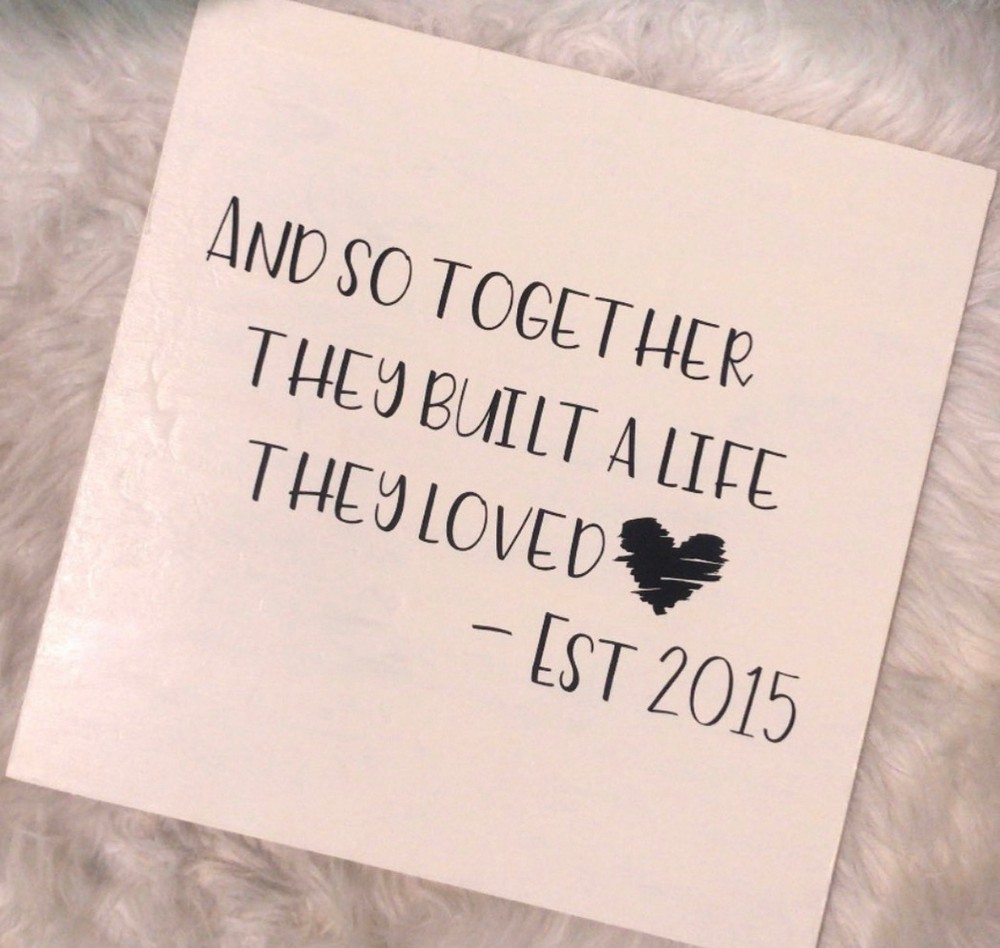 AND SO TOGETHER
THEY BUILT A LIFE
THEY LOVED
- EST 2015